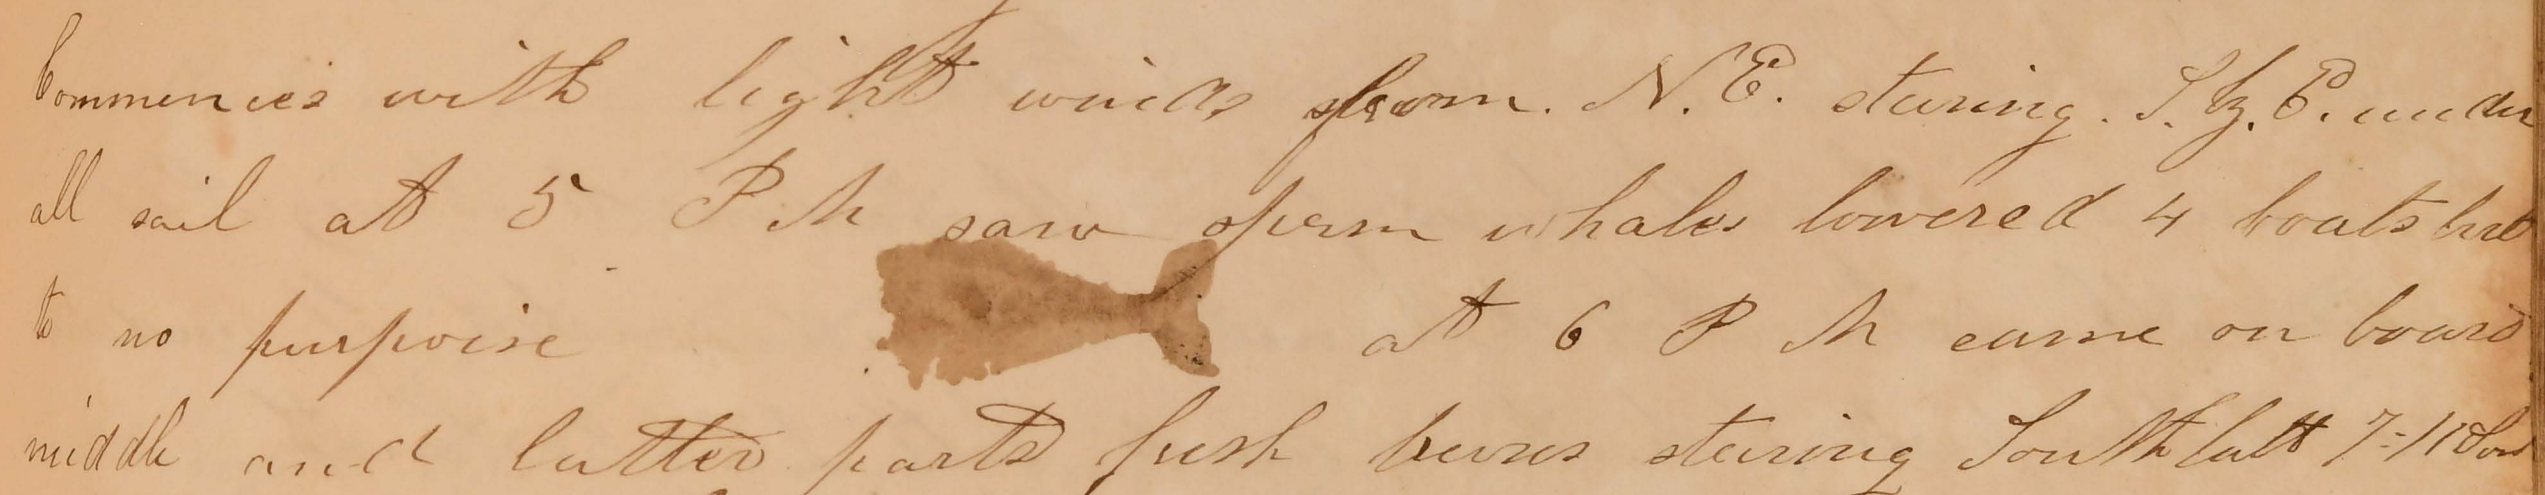 Commences with light winds from N. E. stearing. S. by. E. under
all sail at 5 P M saw sperm whales lowered 4 boats but
to no purpoise at 6 P M came on board
middle and latter parts fresh breezes stearing South latt 7=11 Sou